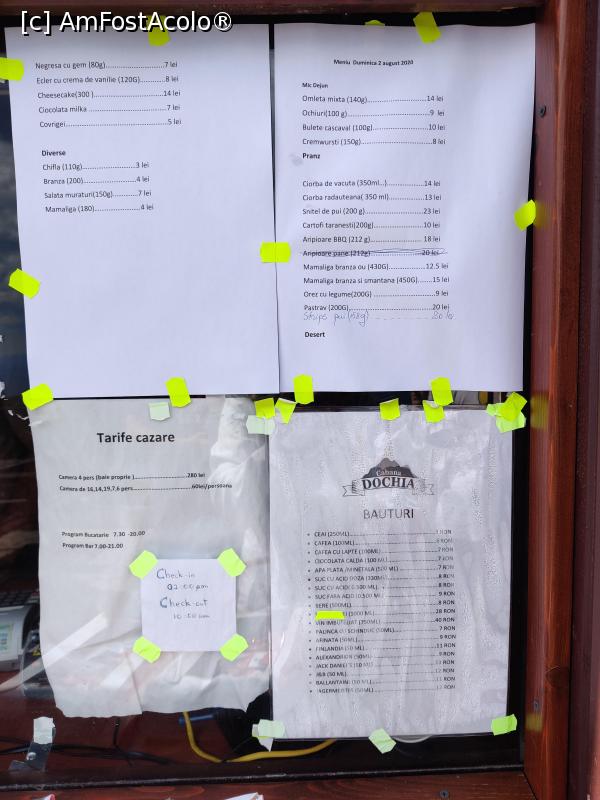 [c] AmFostAcolo®
Negresa cu gem (80g)....................7 lei
Ecler cu crema de vanilie (120G)..........8 lei
Cheesecake(300 )..................14 lei
Ciocolata milka ....................7 lei
Covrigei....................5 lei
Diverse
Chifla (110g)....................3 lei
Branza (200)....................4 lei
Salata muraturi(150g).........7 lei
Mamaliga (180)....................4 lei
Meniu Duminica 2 august 2020
Mic Dejun
Omleta mixta (140g)....................14 lei
Ochiuri(100 g)....................9 lei
Bulete cascaval (100g)....................10 lei
Cremwursti (150g)....................8 lei
Pranz
Ciorba de vacuta (350ml...)..............14 lei
Ciorba radauteana( 350 ml)..............13 lei
Snitel de pui (200 g)....................23 lei
Cartofi taranesti(200g)..................10 lei
Aripioare BBQ (212 g).................. 18 lei
Aripioare pane (212g)..................20 lei
Mamaliga branza ou (430G)..............12.5 lei
Mamaliga branza si smantana (450G)......15 lei
Orez cu legume(200G) ....................9 lei
Pastrav (200G)....................20 lei
Strips pui(168g) - - - - - - - 20 lei
Desert
Tarife cazare
Camera 4 pers (baie proprie )....................280 lei
Camera de 16,14,19,7,6 pers....................60lei/persoana
Program Bucatarie 7.30 -20.00
Program Bar 7.00-21.00
Check-in
02:00 pm
Check-out
10:00 am
Cabana
DOCHIA
BAUTURI
CEAI (250ML) RON
CAFEA (100ML) RON
CAFEA CU LAPTE (100ML) RON
CIOCOLATA CALDA (100 ML) 7 RON
APA PLATA /MINERALA (500 ML) 7 RON
SUC CU ACID DOZA (330ML) 8 RON
SUC CU ACID( 0.500 ML) 8 RON
SUC FARA ACID (0.500 ML) 9 RON
BERE (500ML) 8 RON
(1000 ML) 28 RON
VIN IMBUTELIAT (750ML) 40 RON
PALINCA CU SCHINDUC (50ML) 7 RON
AFINATA (50ML) 9 RON
FINLANDIA (50ML) 11 RON
ALEXANDRION (50ML) 9 RON
JACK DANIEL'S (50 ML) RON
J&B (50 ML) RON
BALLANTAINS (50 ML) RON
JAGERMEISTER (50ML) RON